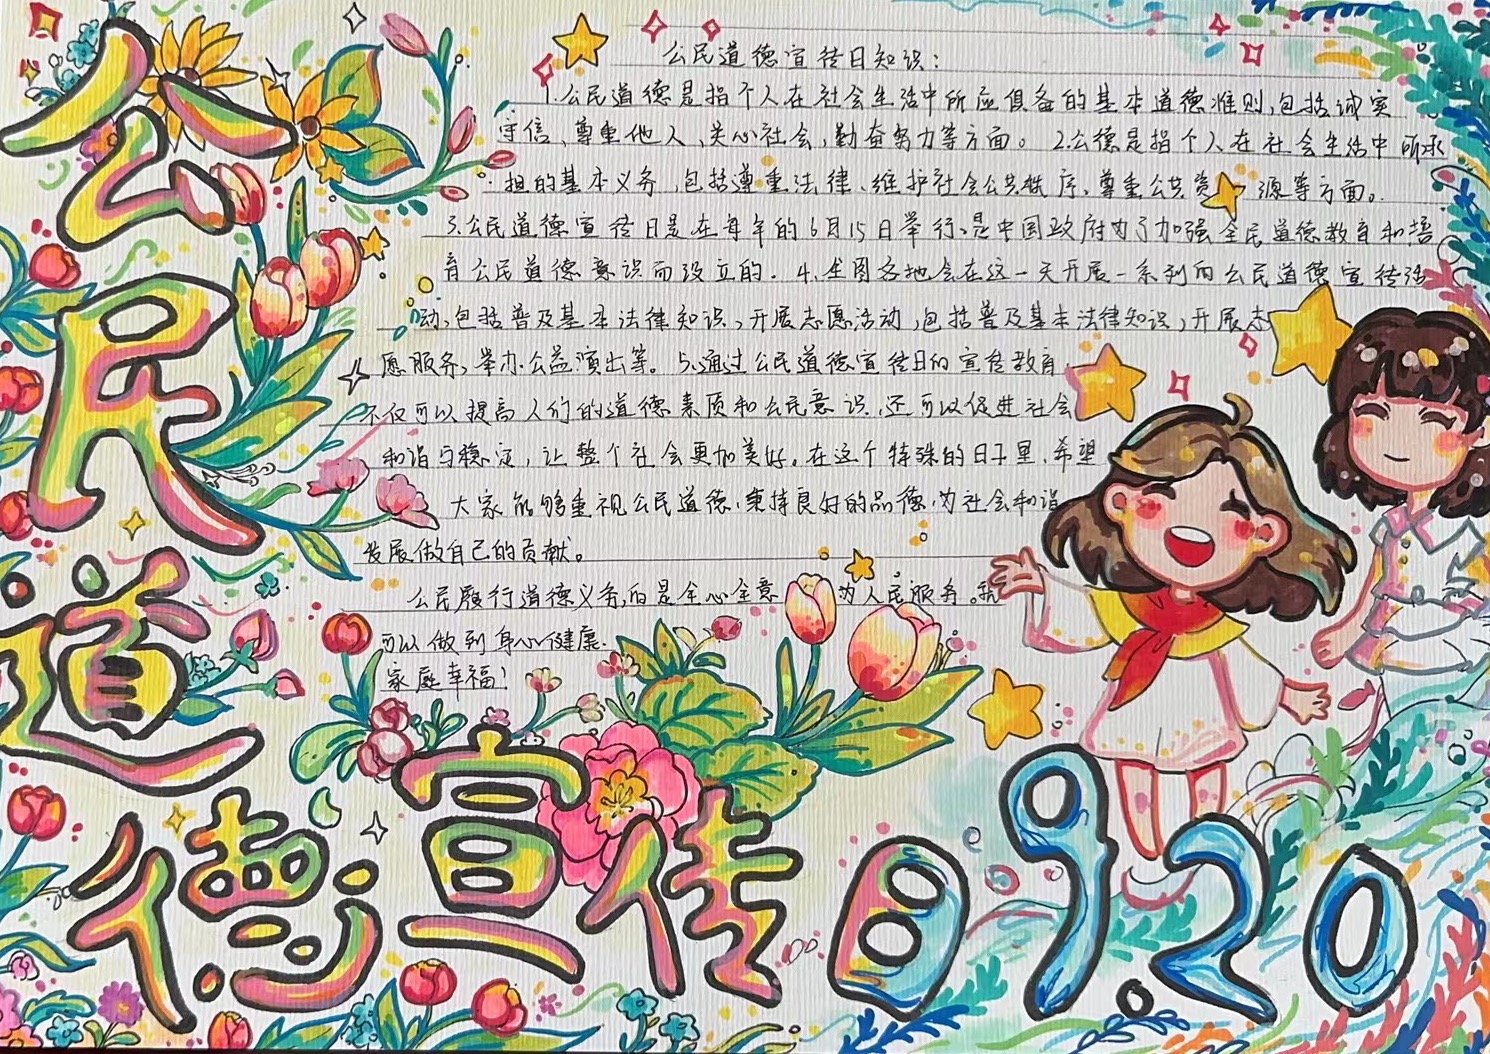 公民道德宣传日 9.20
公民道德宣传日知识：
1.公民道德是指个人在社会生活中所应俱备的基本道德准则，包括诚实
守信，尊重他人，关心社会，勤奋努力等方面。2.公德是指个人在社会生活中所承
担的基本义务，包括遵重法律、维护社会公共秩序、尊重公共资源等方面。
3.公民道德宣传日是在每年的6月15日举行，是中国政府为了加强全民道德教育和培
育公民道德意识而设立的. 4.全国各地会在这一天开展一系列的公民道德宣传活
动，包括普及基本法律知识，开展志愿活动，包括普及基本法律知识，开展志
愿服务，举办公益演出等。5.通过公民道德宣传日的宣传教育
不仅可以提高人们的道德素质和公民意识，还可以促进社会
和谐与稳定，让整个社会更加美好。在这个特殊的日子里，希望
大家能够重视公民道德，秉持良好的品德，为社会和谐
发展做自己的贡献。
公民履行道德义务，的是全心全意为人民服务。就
可以做到身心健康.
家庭幸福！